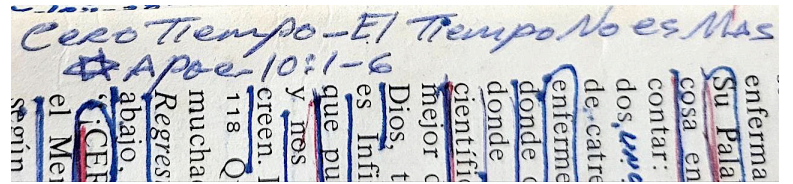 Cero Tiempo - El Tiempo No es Mas
☆ Apoc 10:1-6
enferma
Su Pala
cosa en
contar:
dos, UNO
de catre
enferme
donde
donde
científi
mejor
Dios, t
es Infi
que pu
y nos
creen.
118 Q
mucha
Regres
abajo,
"¡CER
el Mer
según